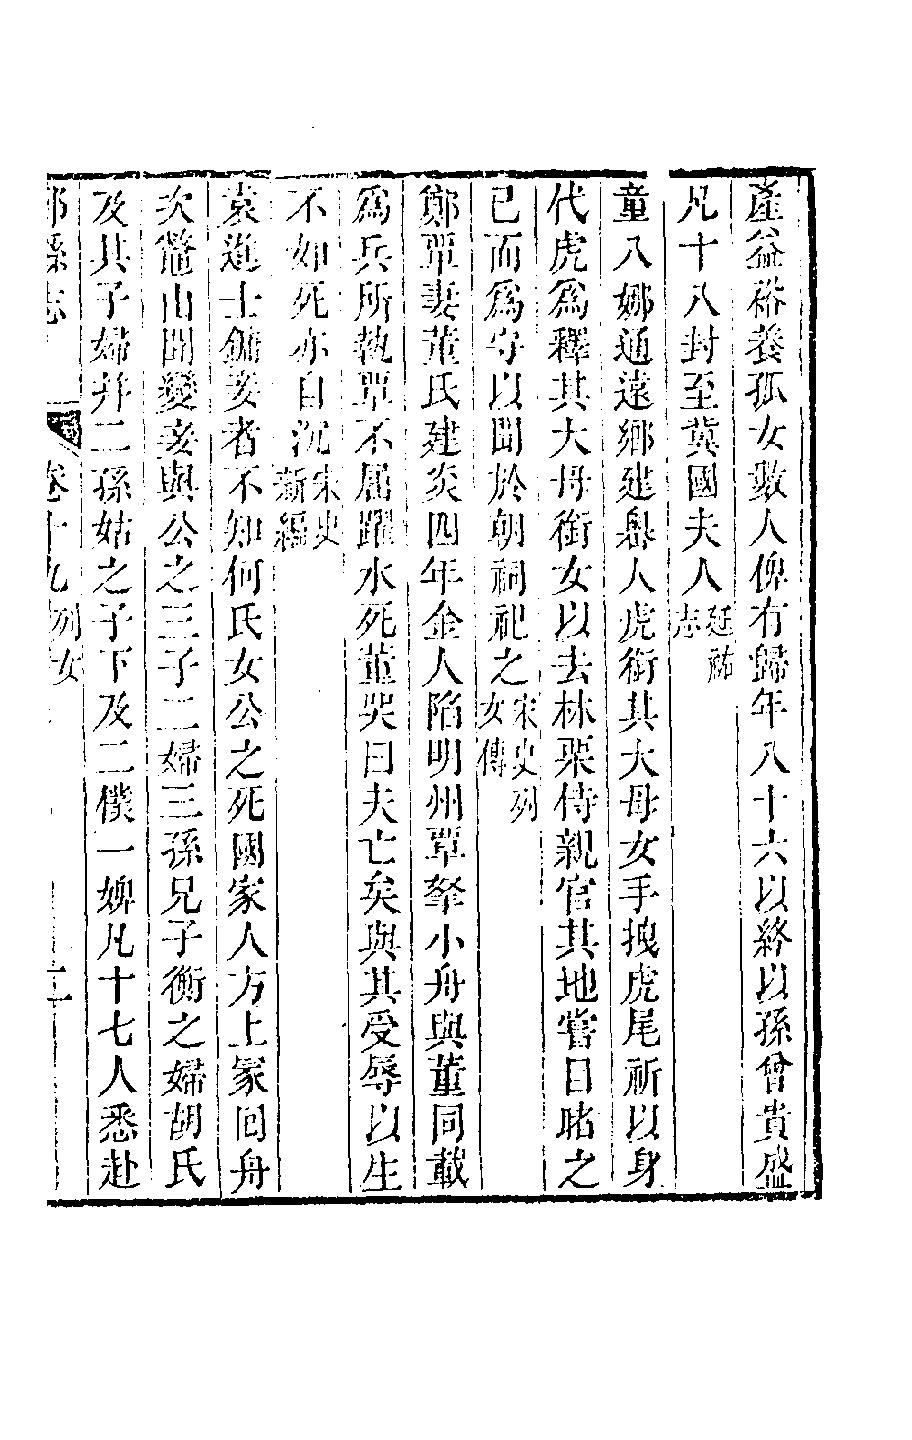 產益裕養孤女數人俾有歸年八十六以終以孫曾貴盛
凡十八封至冀國夫人延祐志
童八娜通遠鄉建嶴人虎銜其大母女手拽虎尾祈以身
代虎爲釋其大母銜女以去林栗侍親官其地嘗目睹之
已而爲守以聞於朝祠祀之宋史列女傳
鄭覃妻董氏建炎四年金人陷明州覃拏小舟與董同載
爲兵所執覃不屈躍水死董哭曰夫亡矣與其受辱以生
不如死亦自沉宋史新編
袁進士鏞妾者不知何氏女公之死國家人方上冢回舟
次鼈山聞變妾與公之三子二婦三孫兄子衡之婦胡氏
及其子婦幷二孫姑之子下及二僕一婢凡十七人悉赴
縣志 卷十九 列女